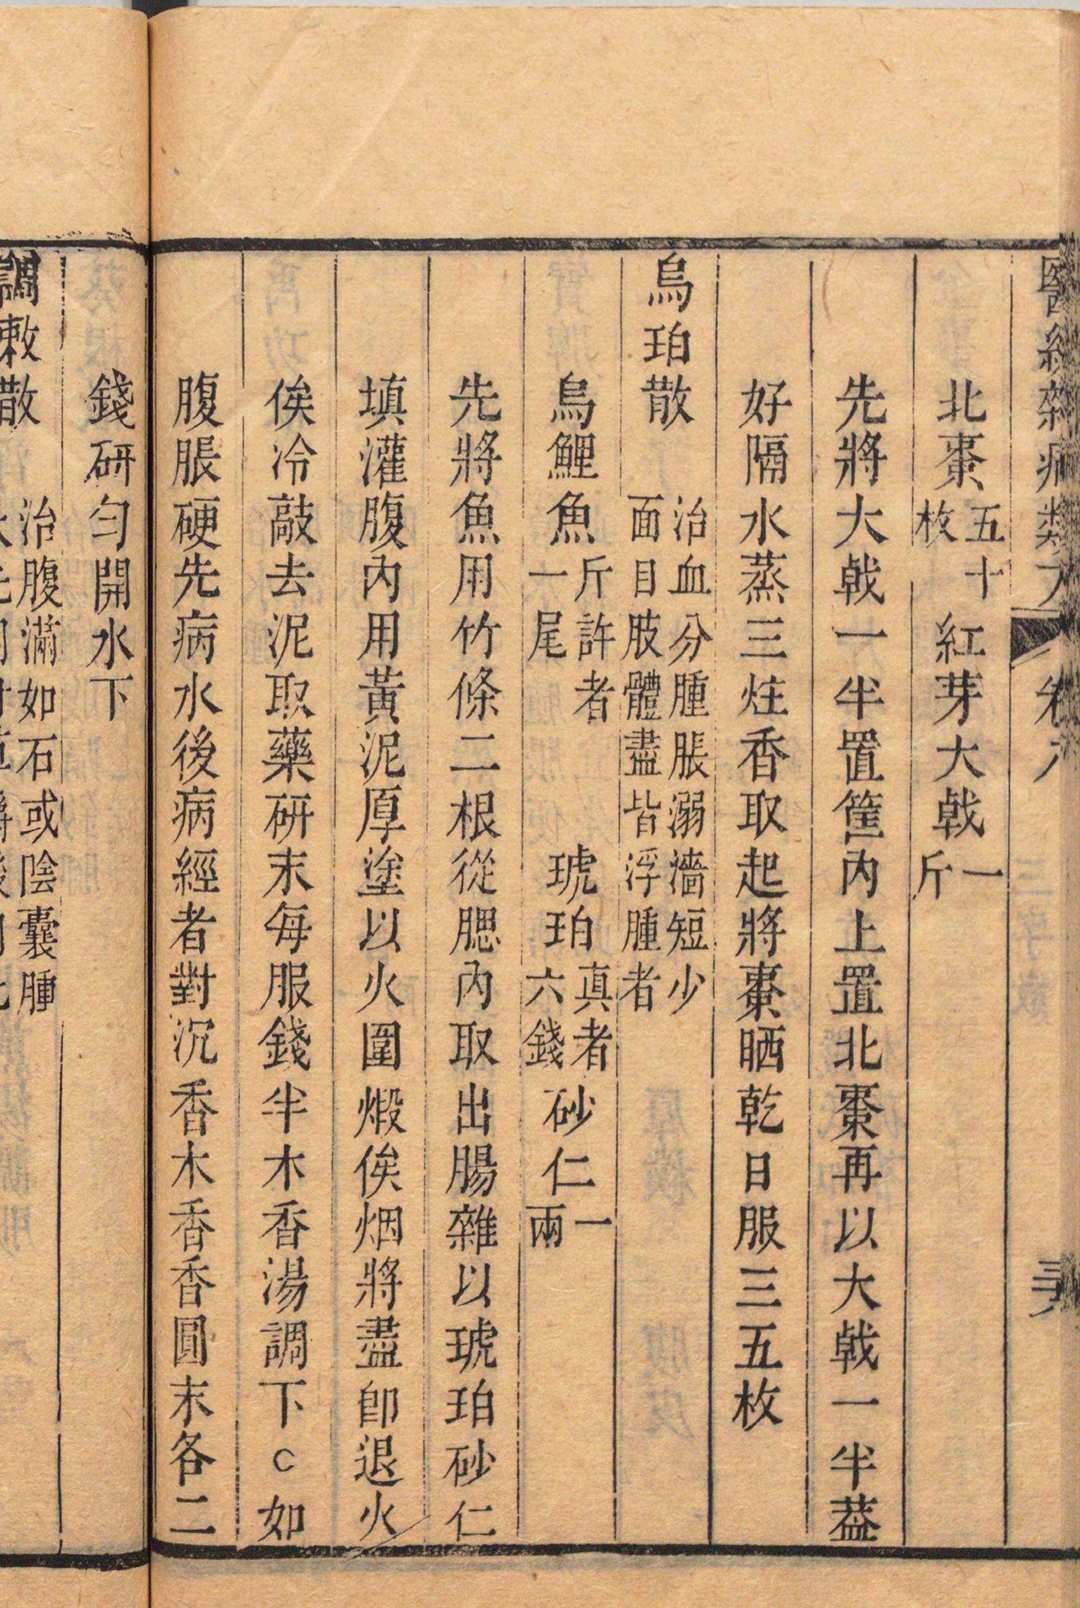 醫級雜病類方 卷八
北棗五十枚 紅芽大戟一斤
先將大戟一半置筐內上置北棗再以大戟一半葢
好隔水蒸三炷香取起將棗晒乾日服三五枚
烏珀散 治血分腫脹溺濇短少面目肢體盡皆浮腫者
烏鯉魚斤許者一尾 琥珀真者六錢 砂仁一兩
先將魚用竹條二根從腮內取出腸雜以琥珀砂仁
填灌腹內用黃泥厚塗以火圍煅俟烟將盡卽退火
俟冷敲去泥取藥研末每服錢半木香湯調下○如
腹脹硬先病水後病經者對沉香木香香圓末各二
錢研勻開水下
散 治腹滿如石或陰囊腫